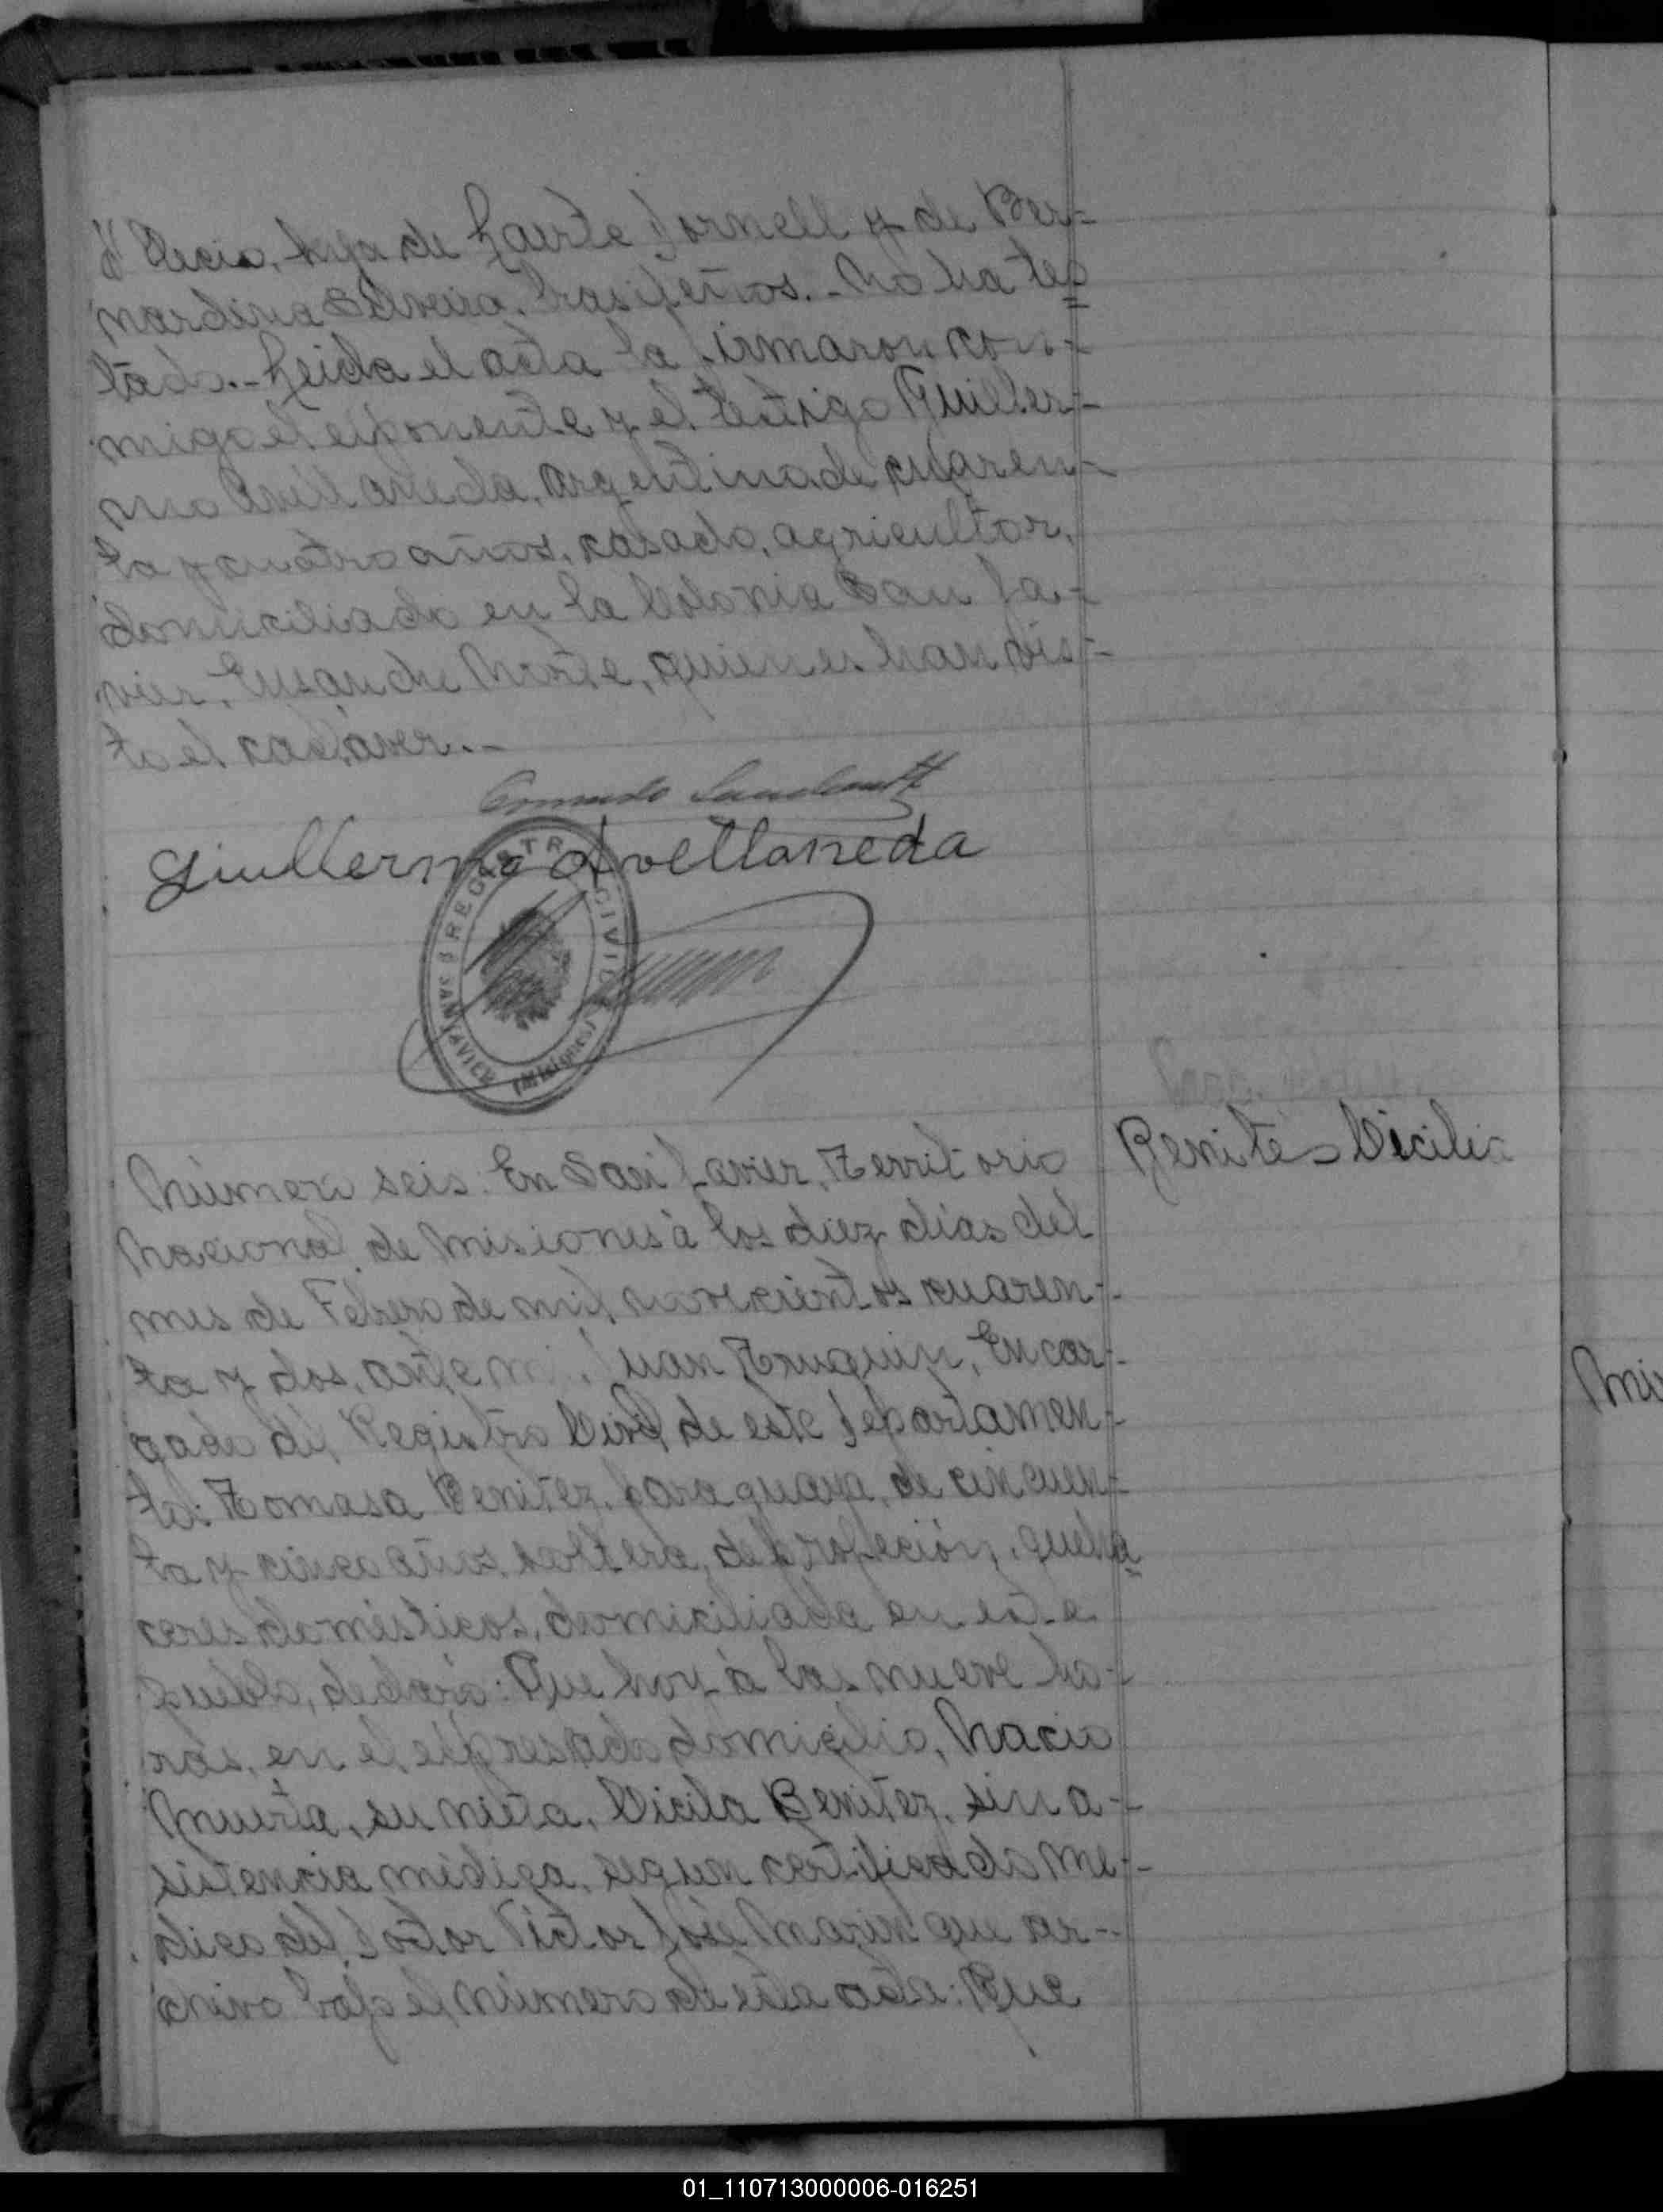 hija de Laerte Dornell y de Ber=
nardina Silveira, brasileños.- No ha tes=
tado.- Leida el acta la firmaron con-
migo el exponente y el testigo Guiller-
mo Avellaneda, argentino, de cuaren-
ta y cuatro años, casado, agricultor,
domiciliado en la Colonia San Ja-
vier, Ensanche Norte, quienes han vis-
to el cadáver.-
Guillermo Avellaneda
REGISTRO CIVIL
SAN JAVIER (Misiones)
Número seis: En San Javier, Territorio
Nacional de Misiones á los diez días del
mes de Febrero de mil novecientos cuaren-
ta y dos, ante mi, Juan, Encar-
gado del Registro Civil de este Departamen-
to: Tomasa Benitez, paraguaya, de cincuen-
ta y cinco años, soltera, de profeción, queha=
ceres domésticos, domiciliada en este
pueblo, declaró: Que hoy á las nueve ho-
ras, en el expresado domicilio, Nacio
Muerta, su nieta, Cicila Benitez, sin a-
sistencia médica, segun certificado me-
dico del Doctor Victor José Marin que ar-
chivo bajo el número de esta acta: Que
Benite= Cicilia
01_110713000006-016251